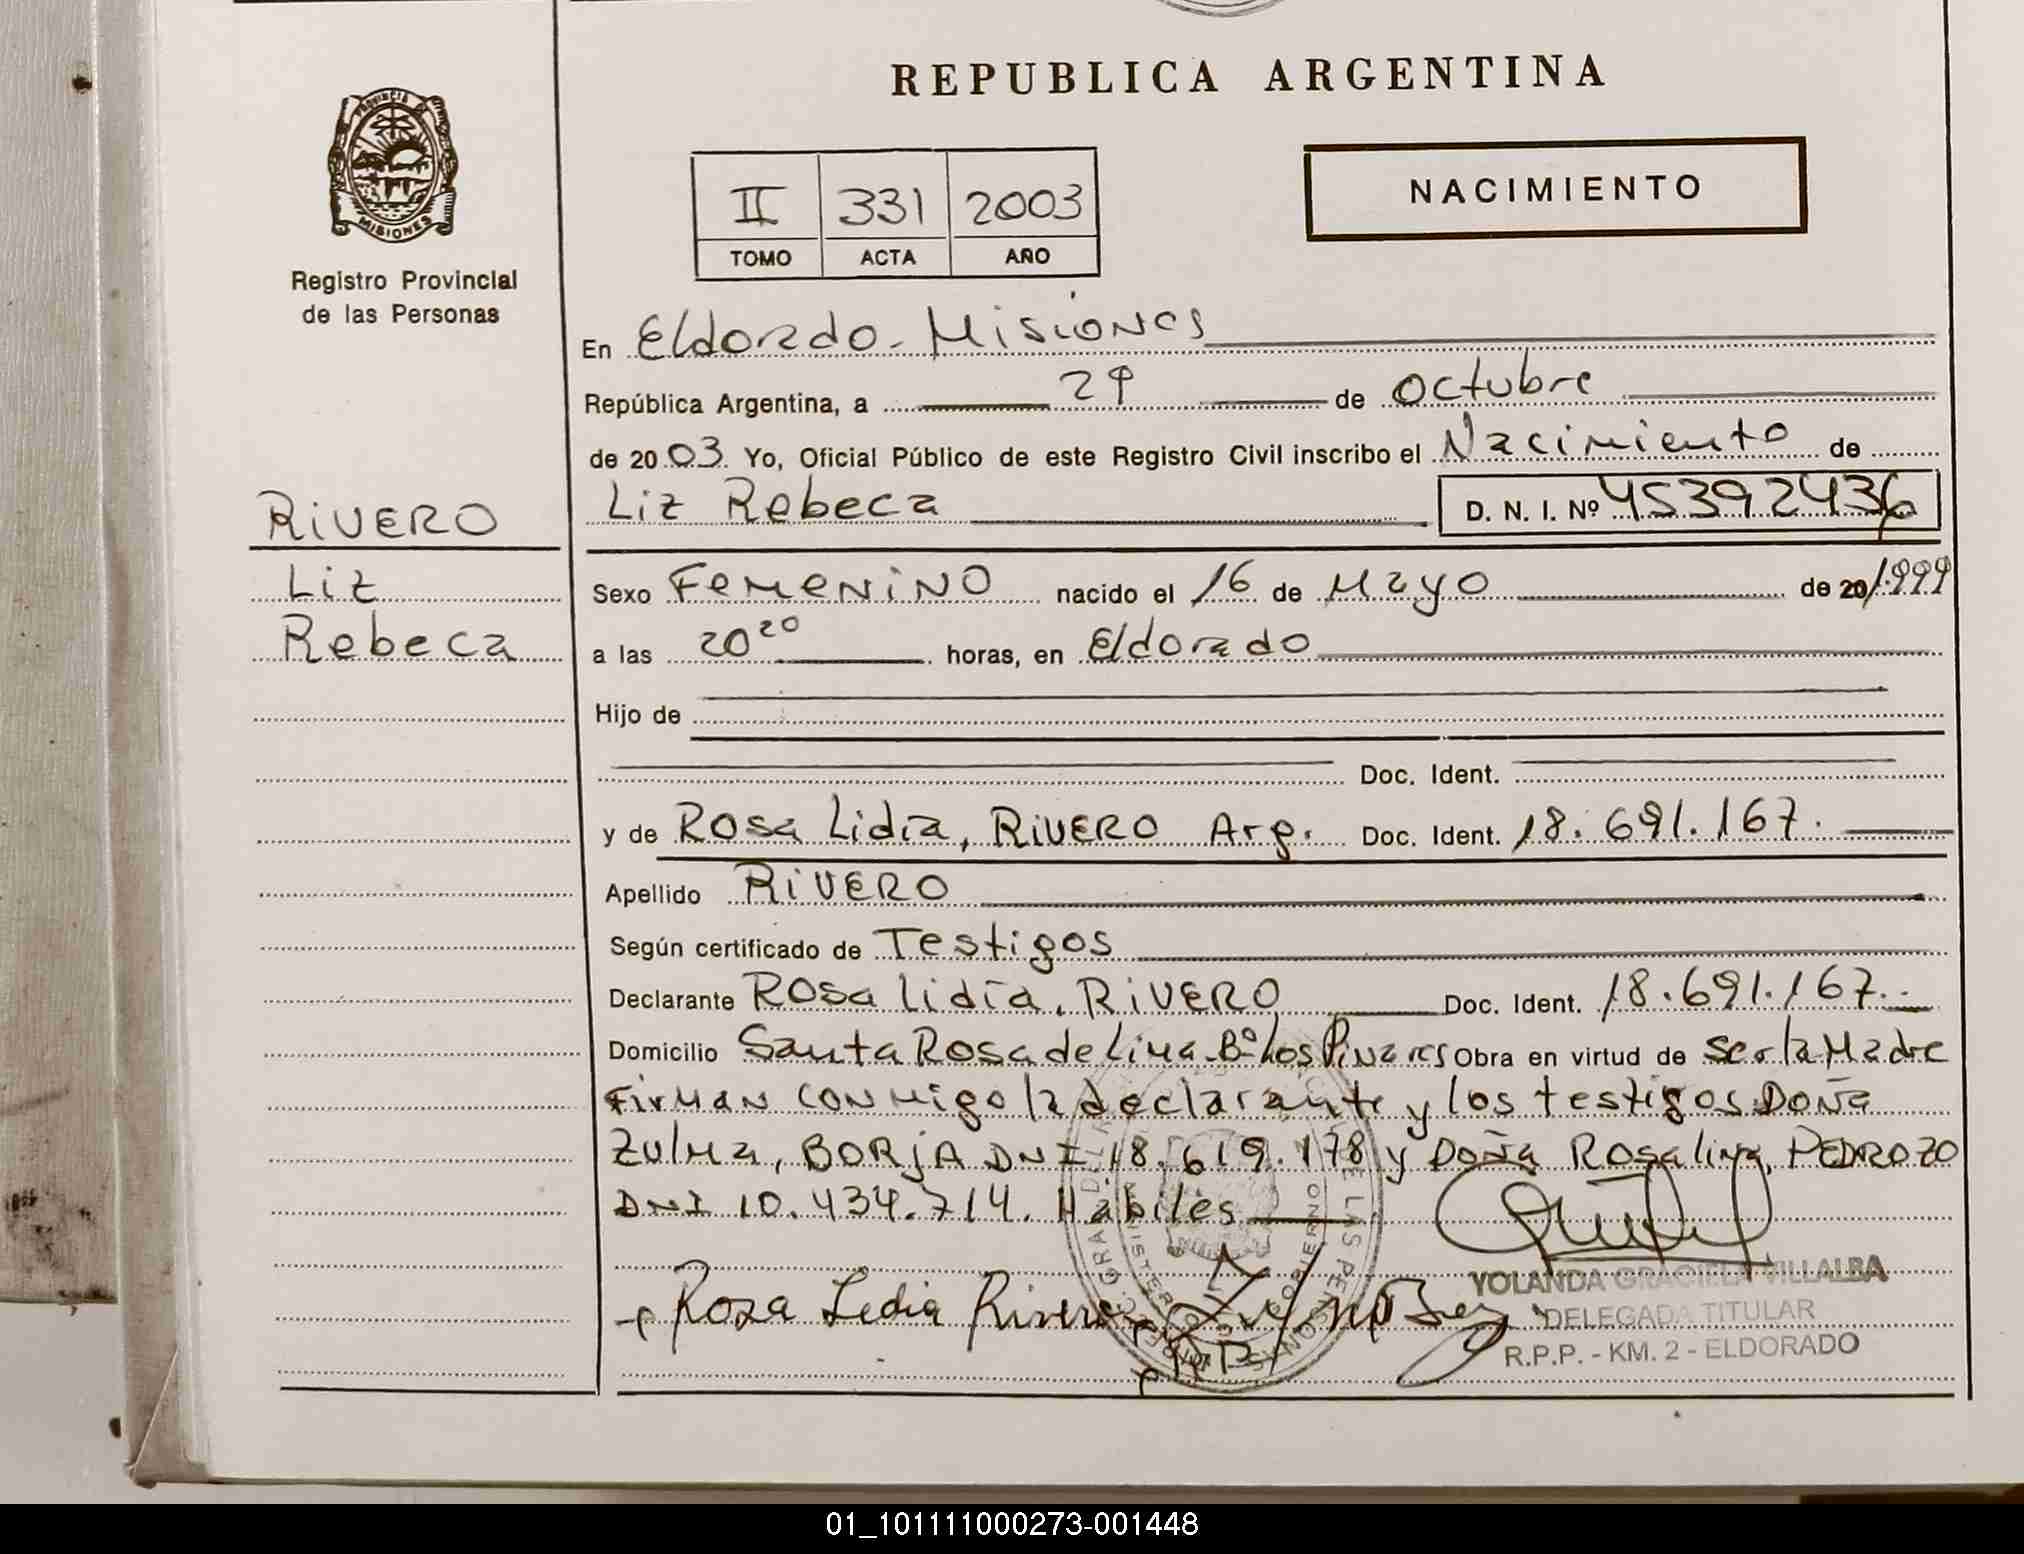 REPUBLICA ARGENTINA
PROVINCIA DE
MISIONES
Registro Provincial
de las Personas
II 331 2003
TOMO ACTA AÑO
NACIMIENTO
En Eldorado - Misiones
República Argentina, a 29 de Octubre
de 2003 Yo, Oficial Público de este Registro Civil inscribo el Nacimiento de
RIVERO
Liz Rebeca D. N. I. Nº 45392436
Liz
Sexo Femenino nacido el 16 de Mayo de 20/1999
Rebeca
a las 20 20 horas, en Eldorado
Hijo de
Doc. Ident.
y de Rosa Lidia, RIVERO Arg. Doc. Ident. 18.691.167.
Apellido RIVERO
Según certificado de Testigos
Declarante Rosa Lidia, RIVERO Doc. Ident. 18.691.167.
Domicilio Santa Rosa de Lima - Bº Los Pinares Obra en virtud de ser la Madre
Firman conmigo la declarante y los testigos Doña
Zulma, BORJA DNI 18.619.178 y Doña Rosalina, PEDROZO
DNI 10.434.714. Hábiles
Rosa Lidia Rivero
YOLANDA GRACIELA VILLALBA
DELEGADA TITULAR
R.P.P. - KM. 2 - ELDORADO
01_101111000273-001448